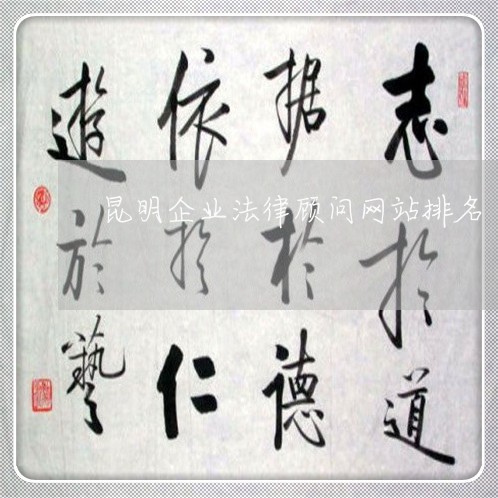 志於道
据於德
依於仁
遊於藝
昆明企业法律顾问网站排名